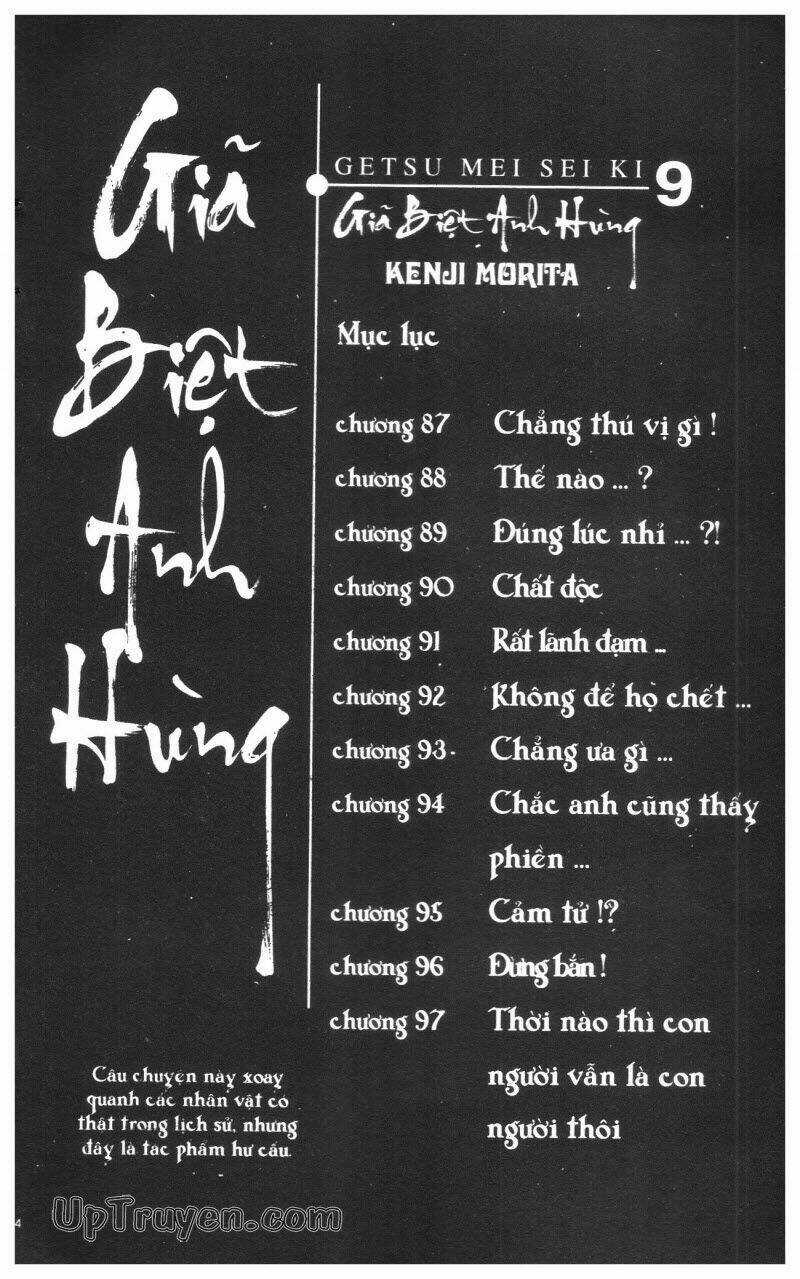 Giã
Biệt
Anh
Hùng
GETSU MEI SEI KI 9
Giã Biệt Anh Hùng
KENJI MORITA
Mục lục
chương 87 Chẳng thú vị gì !
chương 88 Thế nào ... ?
chương 89 Đúng lúc nhỉ ... ?!
chương 90 Chất độc
chương 91 Rất lãnh đạm ...
chương 92 Không để họ chết ...
chương 93 Chẳng ưa gì ...
chương 94 Chắc anh cũng thấy
phiền ...
chương 95 Cảm tử !?
chương 96 Đừng bắn !
chương 97 Thời nào thì con
người vẫn là con
người thôi
Câu chuyện này xoay
quanh các nhân vật có
thật trong lịch sử, nhưng
đây là tác phẩm hư cấu.
4
UpTruyen.com